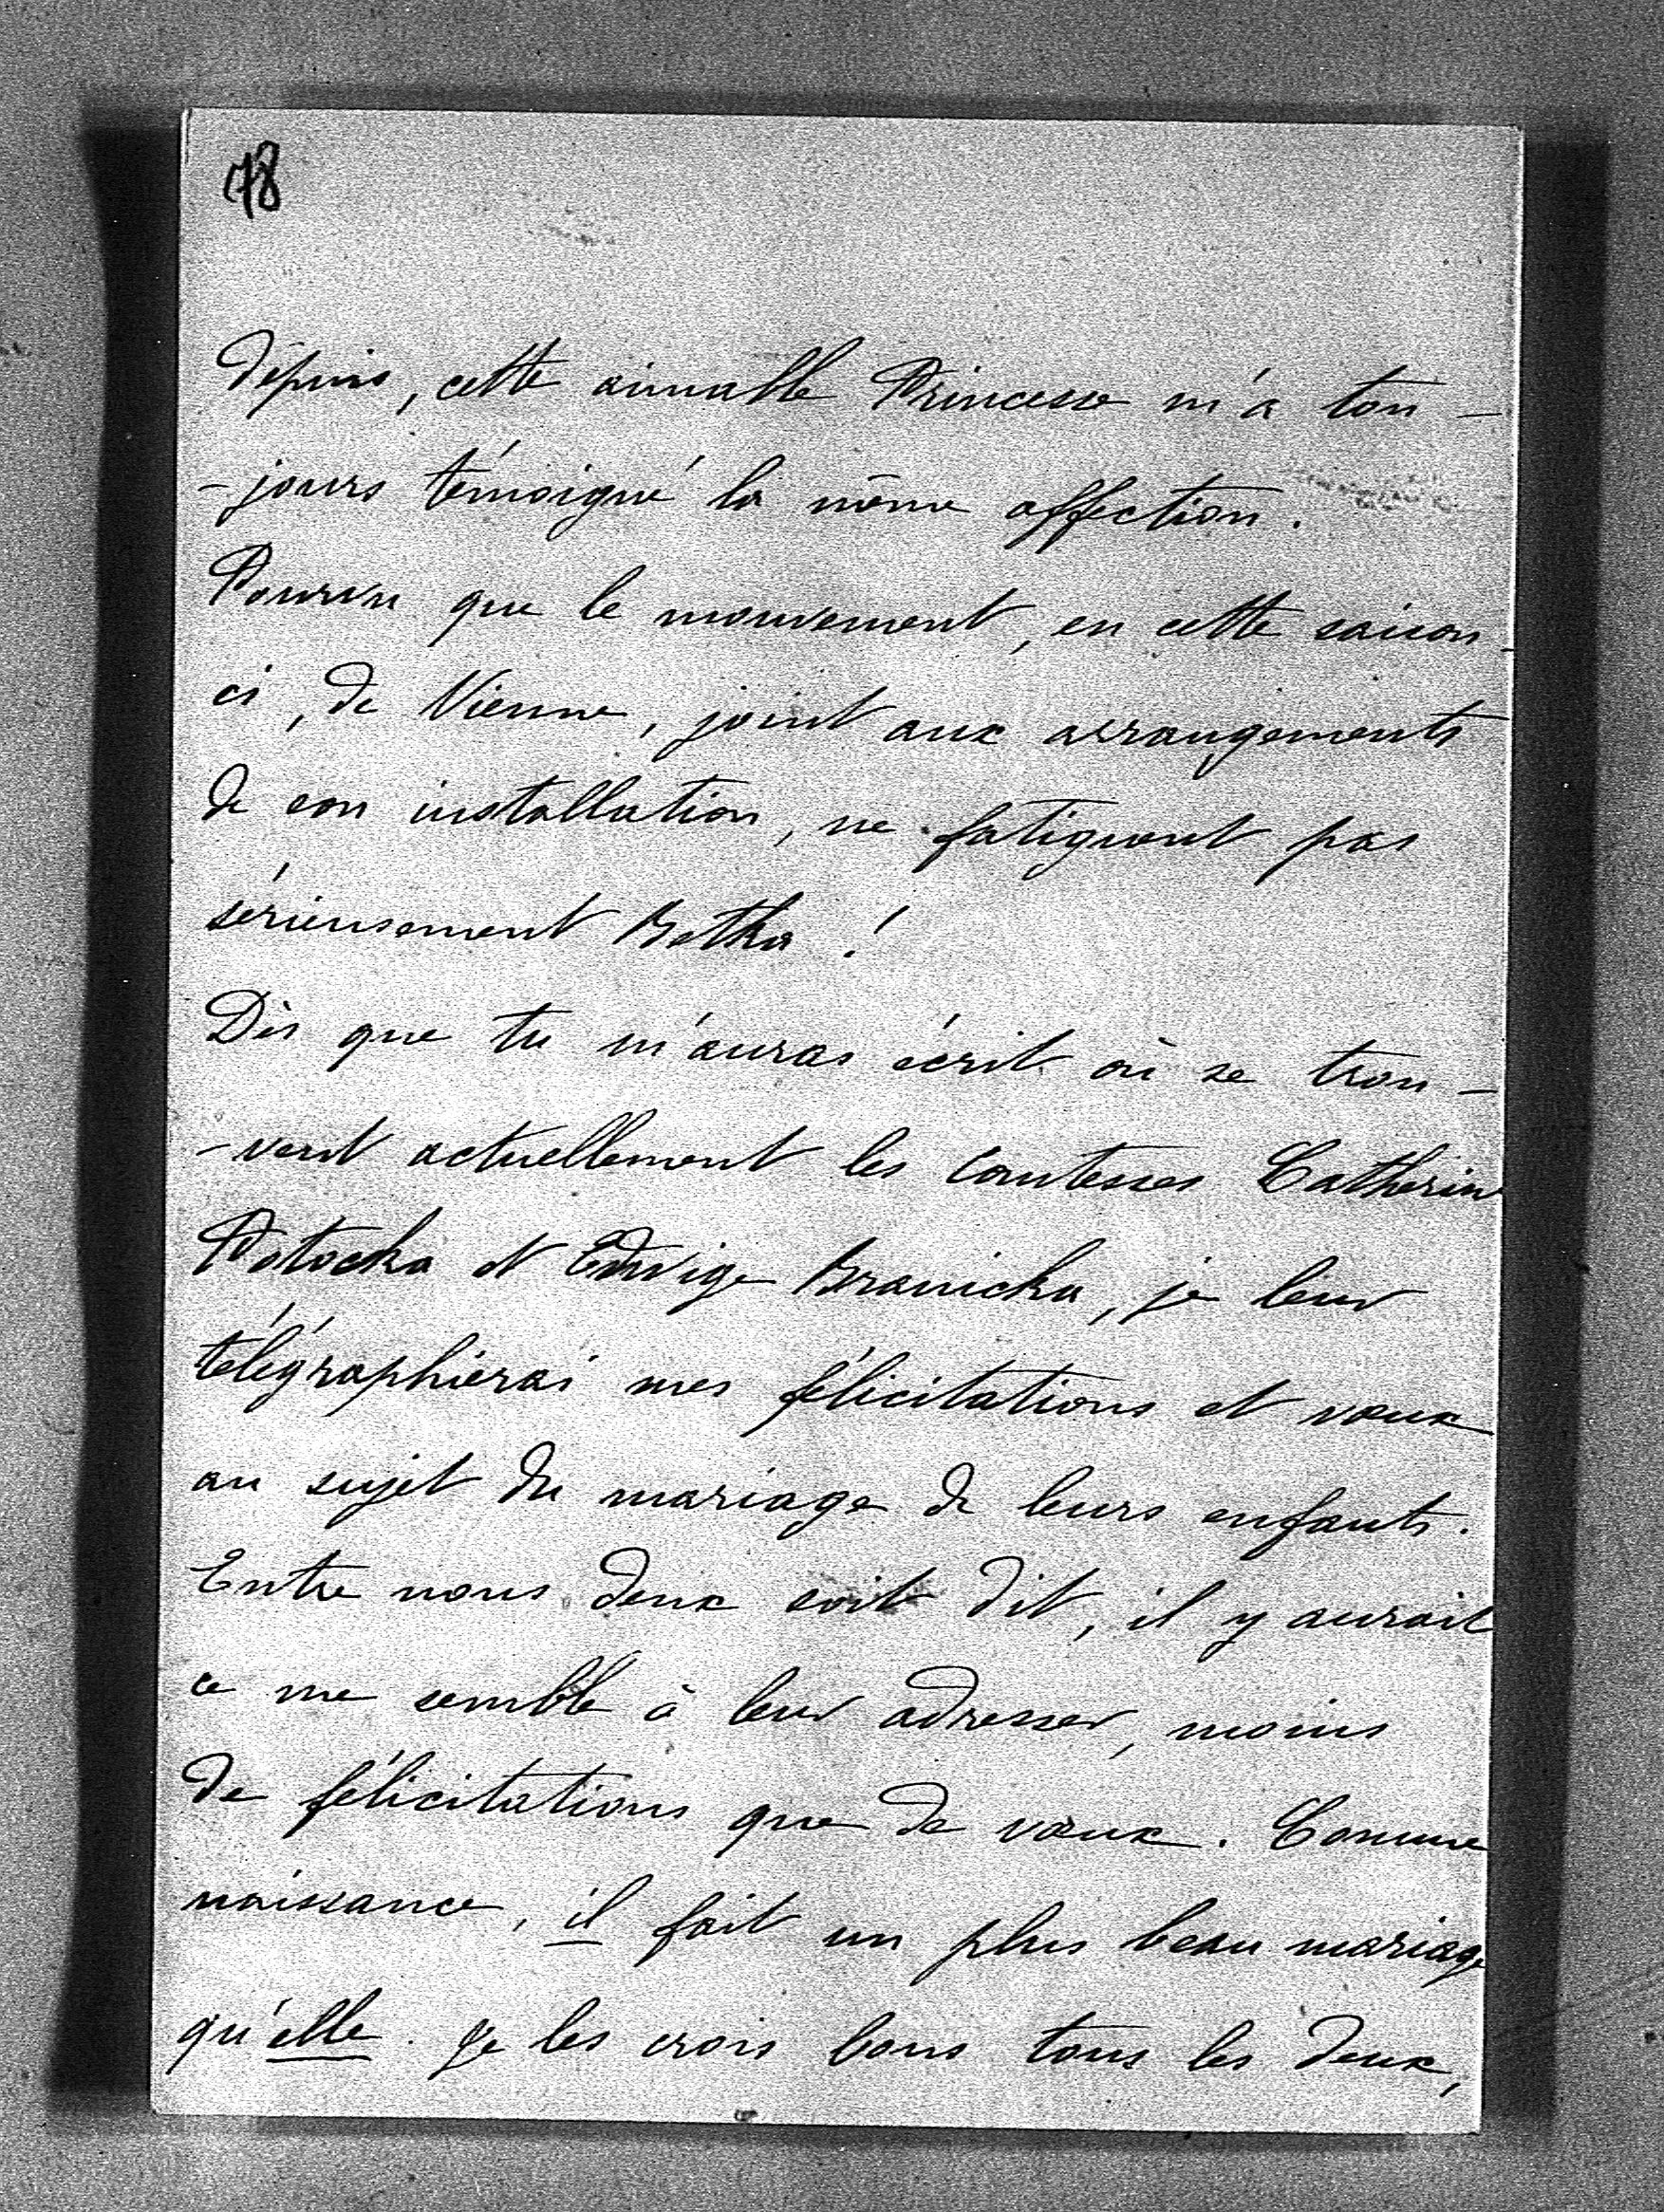 78
Dépuis, cette aimable Princesse m'a tou-
-jours témoigné la même affection.
Pourvu que le mouvement, en cette saison-
ci, de Vienne, joint aux arrangements
de son installation, ne fatiguent pas
sérieusement Betka !
Dès que tu m'auras écrit où se trou-
-vent actuellement les comtesses Catherine
Potocka et Edwige Branicka, je leur
télégraphierai mes félicitations et vœux
au sujet du mariage de leurs enfants.
Entre nous deux soit dit, il y aurait
ce me semble à leur adresser, moins
de félicitations que de vœux. Comme
naissance, il fait un plus beau mariage
qu'elle. Je les crois bons tous les deux,